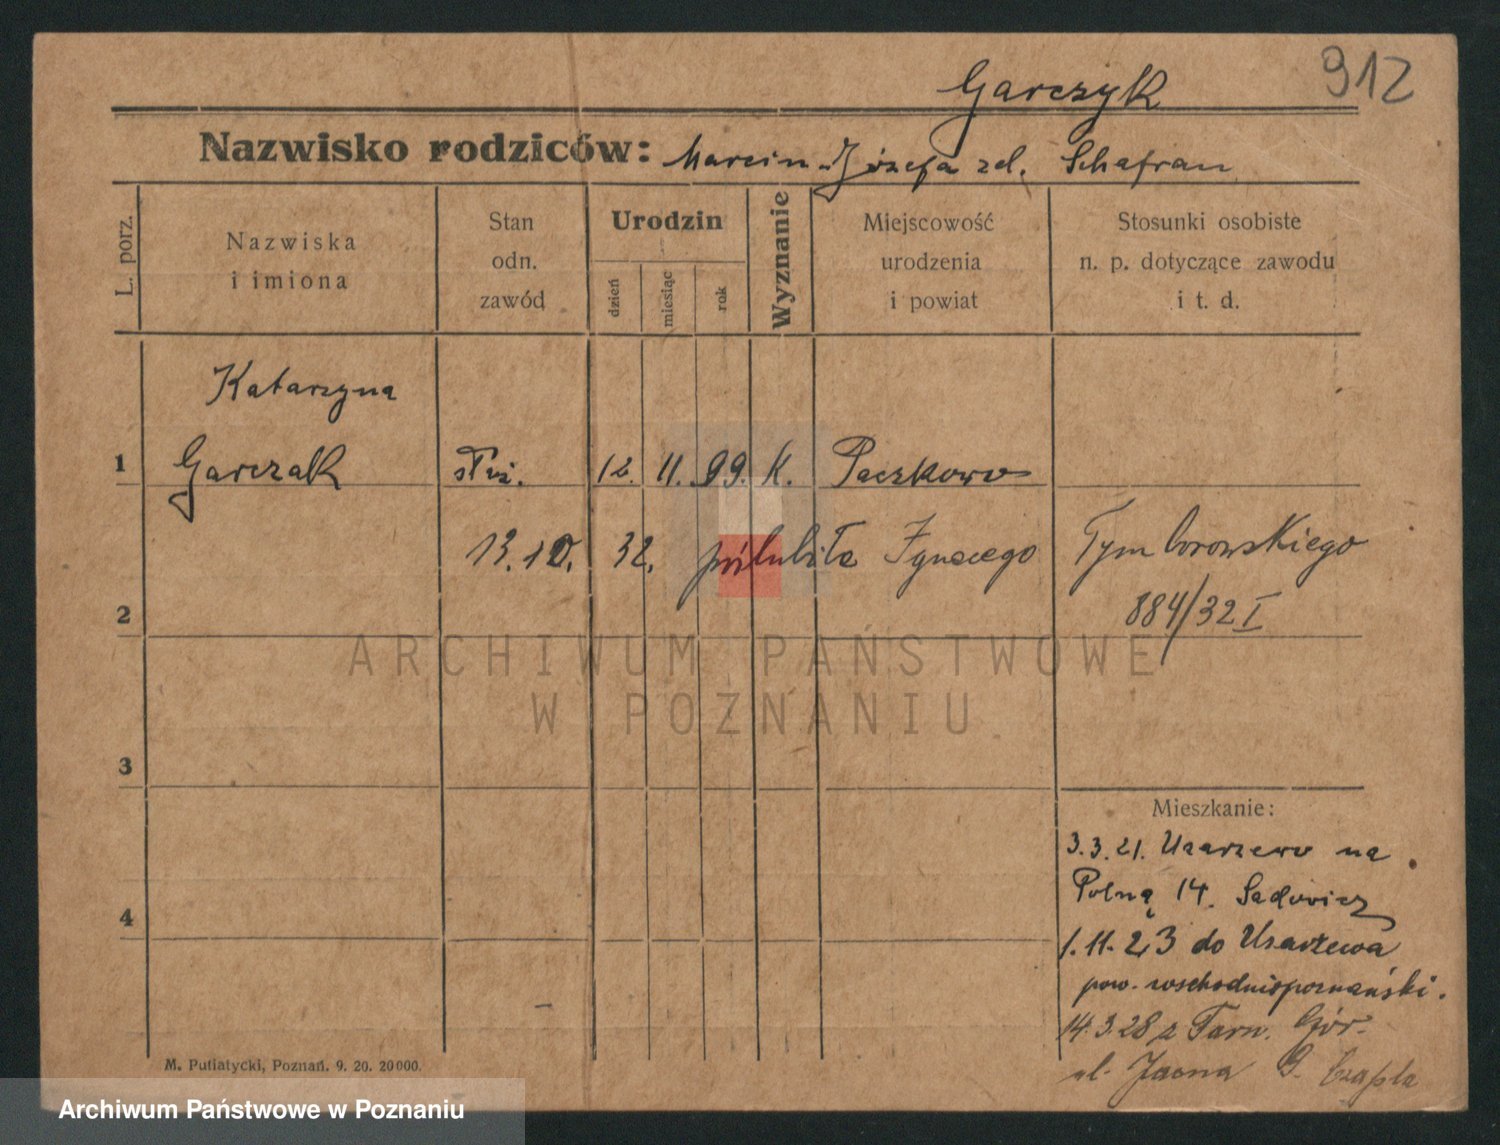 912
Garczyk
Nazwisko rodziców: Marcin - Józefa zd. Schafran
L. porz.
Nazwiska i imiona
Stan odn. zawód
Urodzin
dzień
miesiąc
rok
Wyznanie
Miejscowość urodzenia i powiat
Stosunki osobiste n. p. dotyczące zawodu i t. d.
Katarzyna
1 Garczak służ. 12. 11. 99. K. Paczkowo
13.10. 32. poślubiła Ignacego Tymborowskiego
884/32 I
2
3
4
Mieszkanie:
3.3.21. Uzarzewo na
Polną 14. Sadowicz
1.11.23 do Uzarzewa
pow. wschodniopoznański.
14.3.28 z Tarn. Gór.
ul. Jasna 9. Czapla
M. Putiatycki, Poznań. 9. 20. 20000.
ARCHIWUM PAŃSTWOWE
W POZNANIU
Archiwum Państwowe w Poznaniu